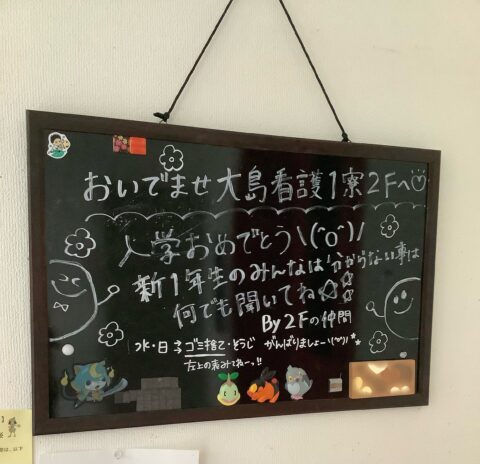 おいでませ大島看護1寮2Fへ
入学おめでとう\(^o^)/
新1年生のみんなは分からない事は
何でも聞いてね☆☆
By 2Fの仲間
水・日 ゴミ捨て・そうじ がんばりましょー\(^o^)/
左上の表みてねーっ!!